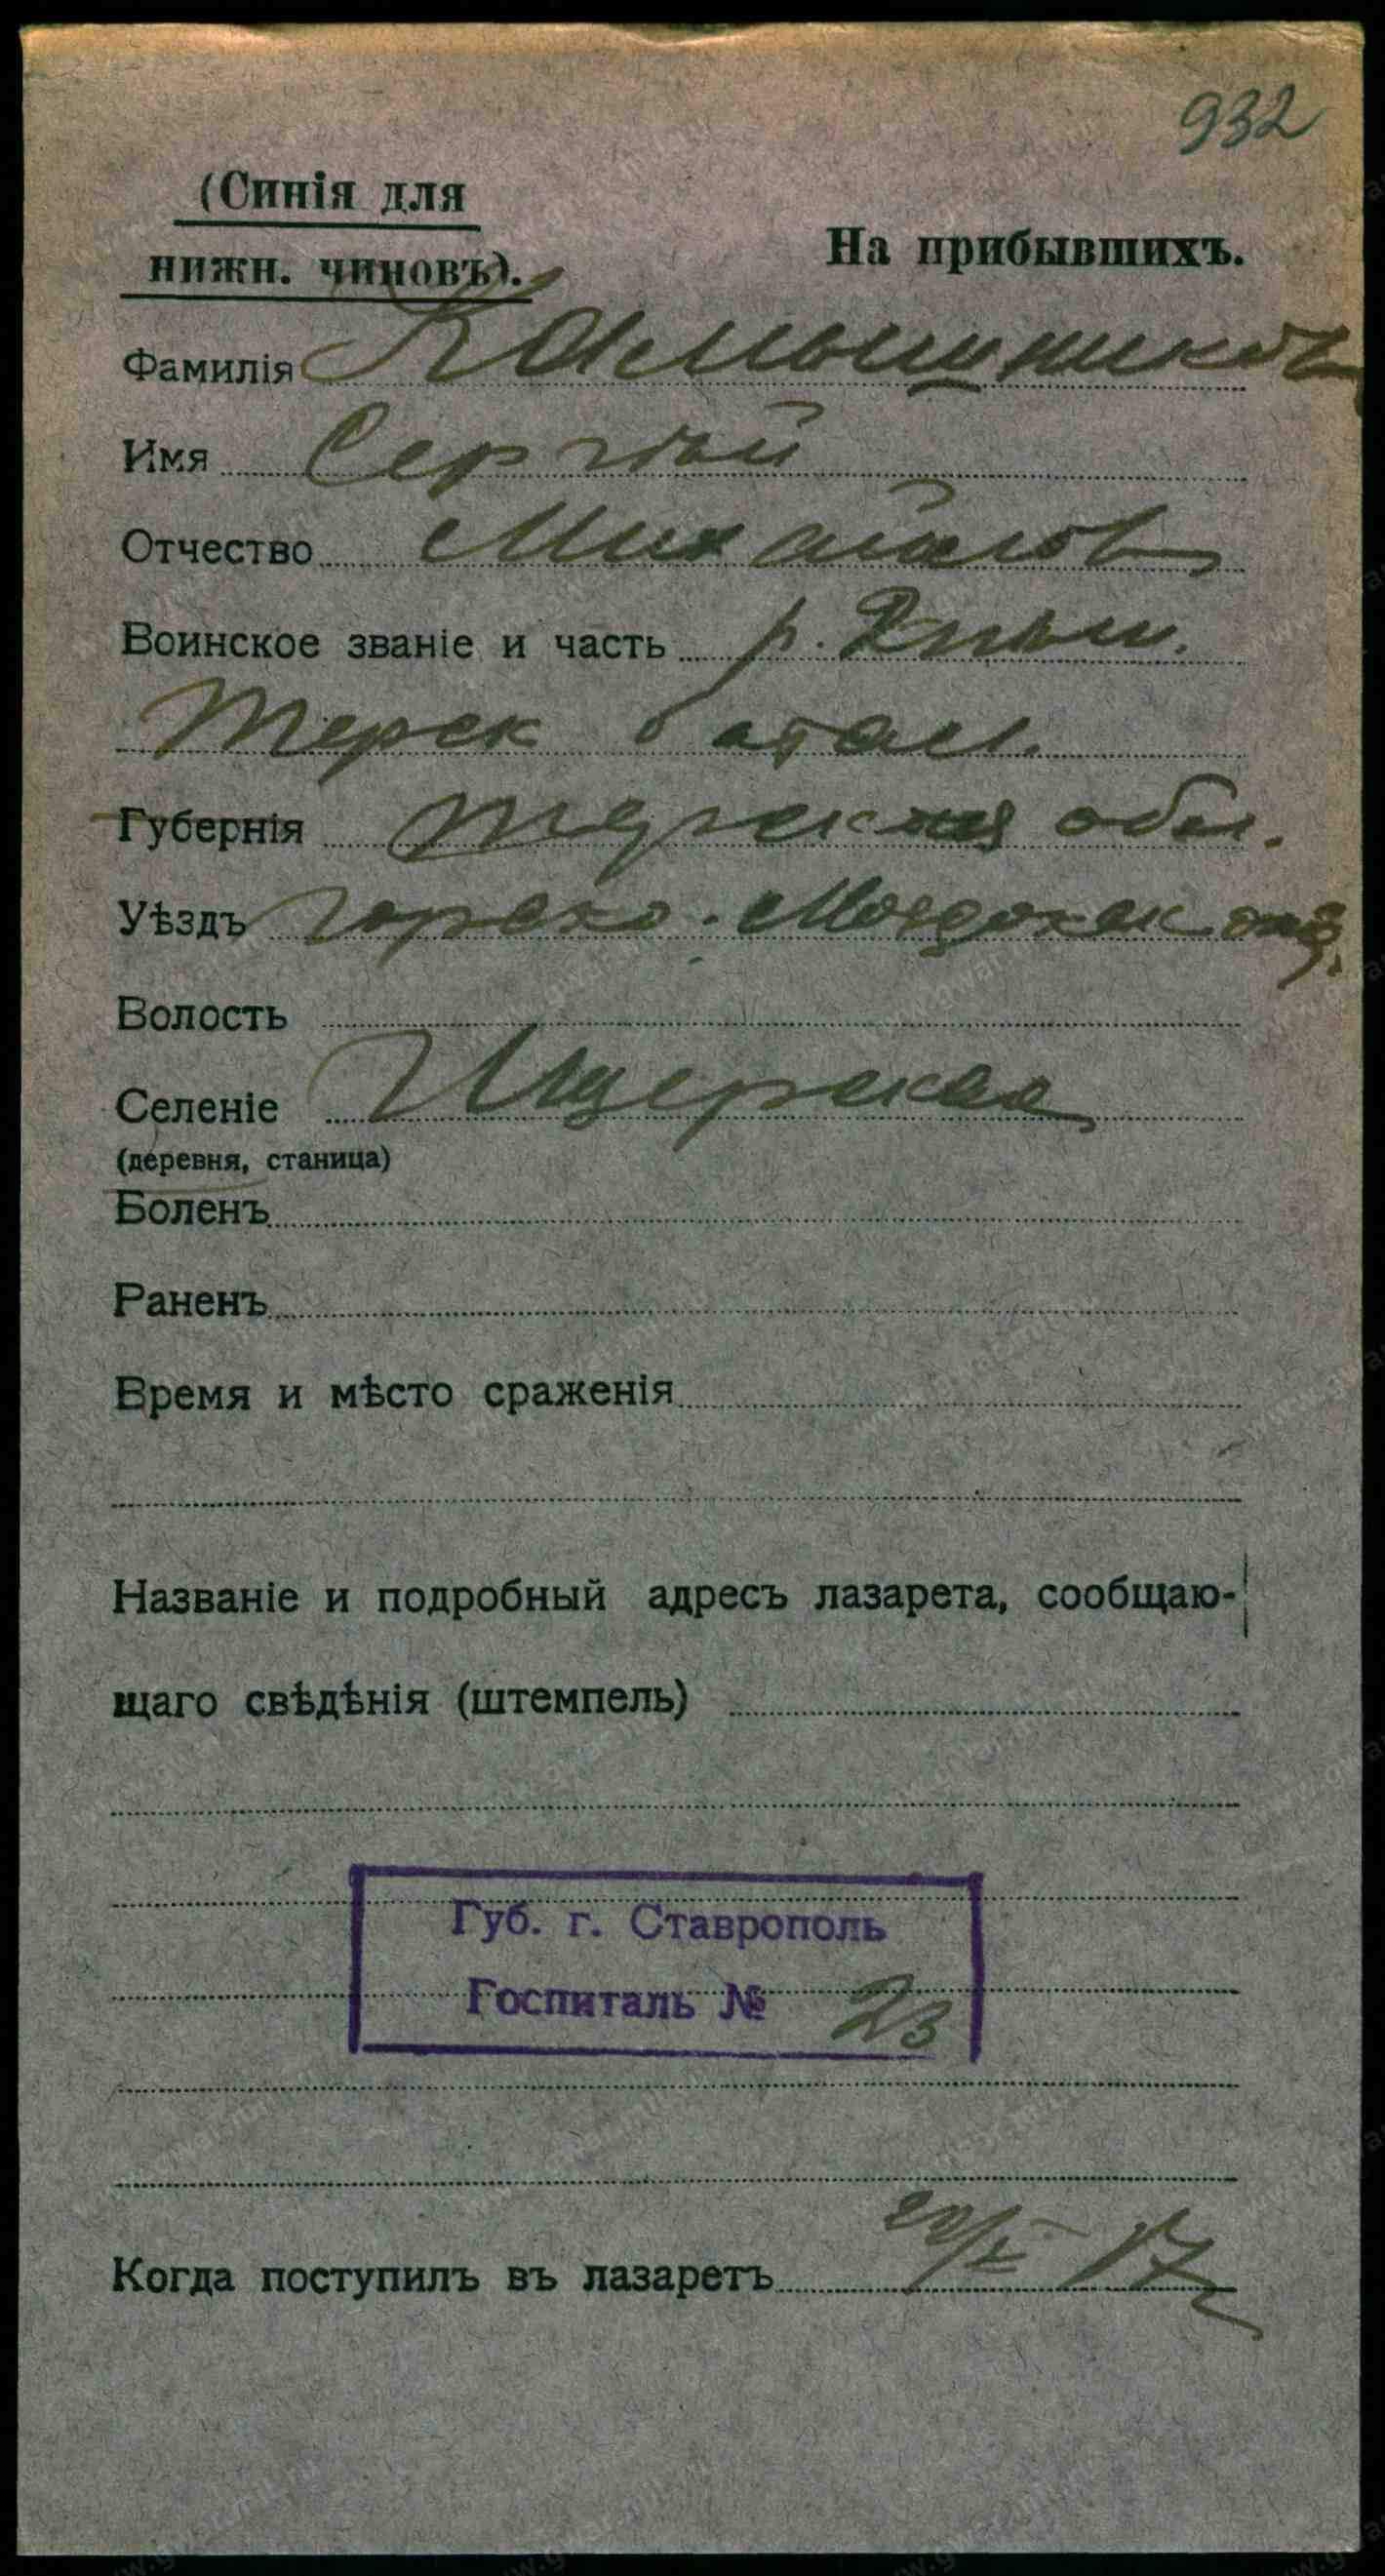 932
(Синія для
нижн. чиновъ).
На прибывшихъ.
Фамилія Камышниковъ
Имя Сергѣй
Отчество Михайловъ
Воинское званіе и часть р.
Терек батал.
Губернія Терская обл.
Уѣздъ Горско-Моздокск отд.
Волость
Селеніе Ищерская
(деревня, станица)
Боленъ
Раненъ
Время и мѣсто сраженія
Названіе и подробный адресъ лазарета, сообщаю-
щаго свѣдѣнія (штемпель)
Губ. г. Ставрополь
Госпиталь № 23
Когда поступилъ въ лазаретъ 17